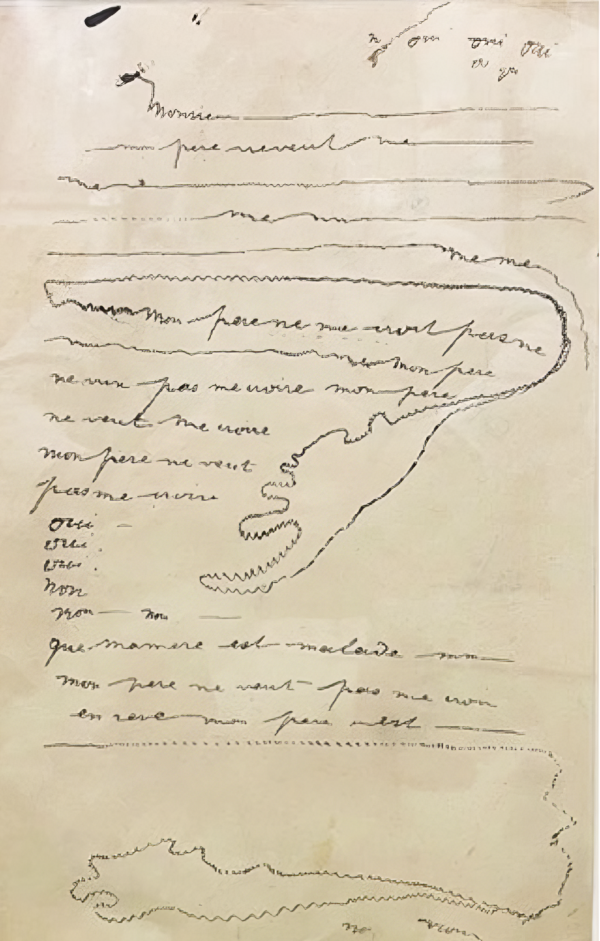 n oui oui oui
Monsieu
mon pere neveut ne
me
me
me me
Mon pere ne me croit pas ne
mon pere
ne veux pas me croire mon pere
ne veut me croire
mon pere ne veut
pas me croire
oui
oui
oui
non
non non
que mamere est malade
mon pere ne veut pas me croir
en reve mon pere est